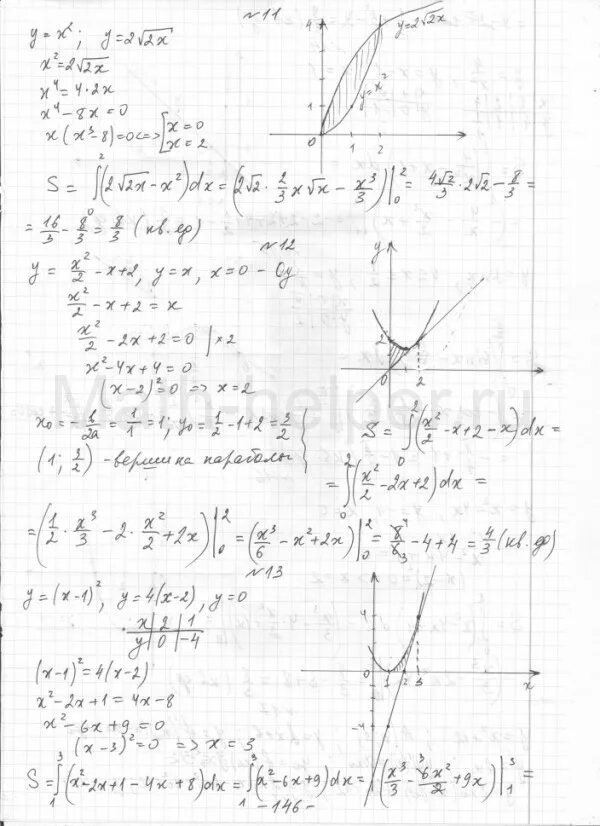 №11
y = x²; y = 2√2x
x² = 2√2x
x⁴ = 4·2x
x⁴ − 8x = 0
x(x³ − 8) = 0 <=> [x = 0
x = 2
4
1
0
1 2
y = 2√2x
y = x²
S = ∫₀²(2√2x − x²)dx = (2√2 · 2/3 x√x − x³/3)|₀² = 4√2/3 · 2√2 − 8/3 =
= 16/3 − 8/3 = 8/3 (кв. ед)
№12
y = x²/2 − x + 2, y = x, x = 0 − Oy
x²/2 − x + 2 = x
x²/2 − 2x + 2 = 0 | × 2
x² − 4x + 4 = 0
(x − 2)² = 0 => x = 2
y
2
0
2
Math-helper.ru
x₀ = −b/2a = 1/1 = 1; y₀ = 1/2 − 1 + 2 = 3/2
(1; 3/2) − вершина параболы
S = ∫₀²(x²/2 − x + 2 − x)dx =
= ∫₀²(x²/2 − 2x + 2)dx =
= (1/2 · x³/3 − 2 · x²/2 + 2x)|₀² = (x³/6 − x² + 2x)|₀² = 8⁴/6₃ − 4 + 4 = 4/3 (кв. ед)
№13
y = (x − 1)², y = 4(x − 2), y = 0
x | 2 | 1
y | 0 | −4
(x − 1)² = 4(x − 2)
x² − 2x + 1 = 4x − 8
x² − 6x + 9 = 0
(x − 3)² = 0 => x = 3
4
1 2 3
x
−4
S = ∫₁³(x² − 2x + 1 − 4x + 8)dx = ∫₁³(x² − 6x + 9)dx = (x³/3 − 6³x²/2 + 9x)|₁³ =
− 146 −